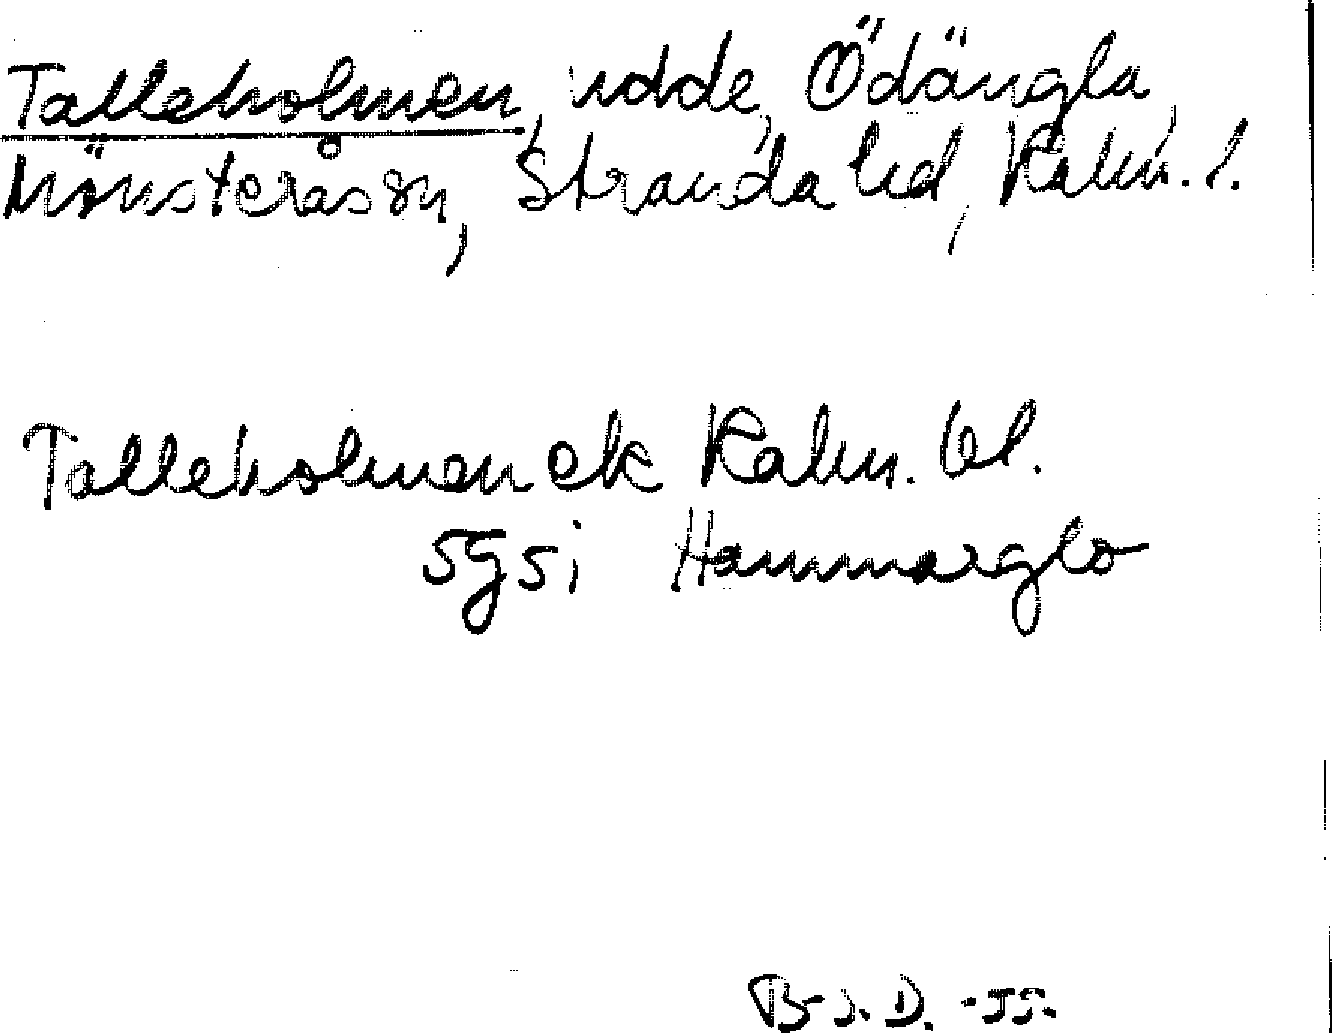 Talleholmen, udde, Ödängla,
Mönsterås sn, Stranda hd, Kalm. l.
Talleholmen ek Kalm. bl.
5g5i Hammarglo
B-J.D. -55.